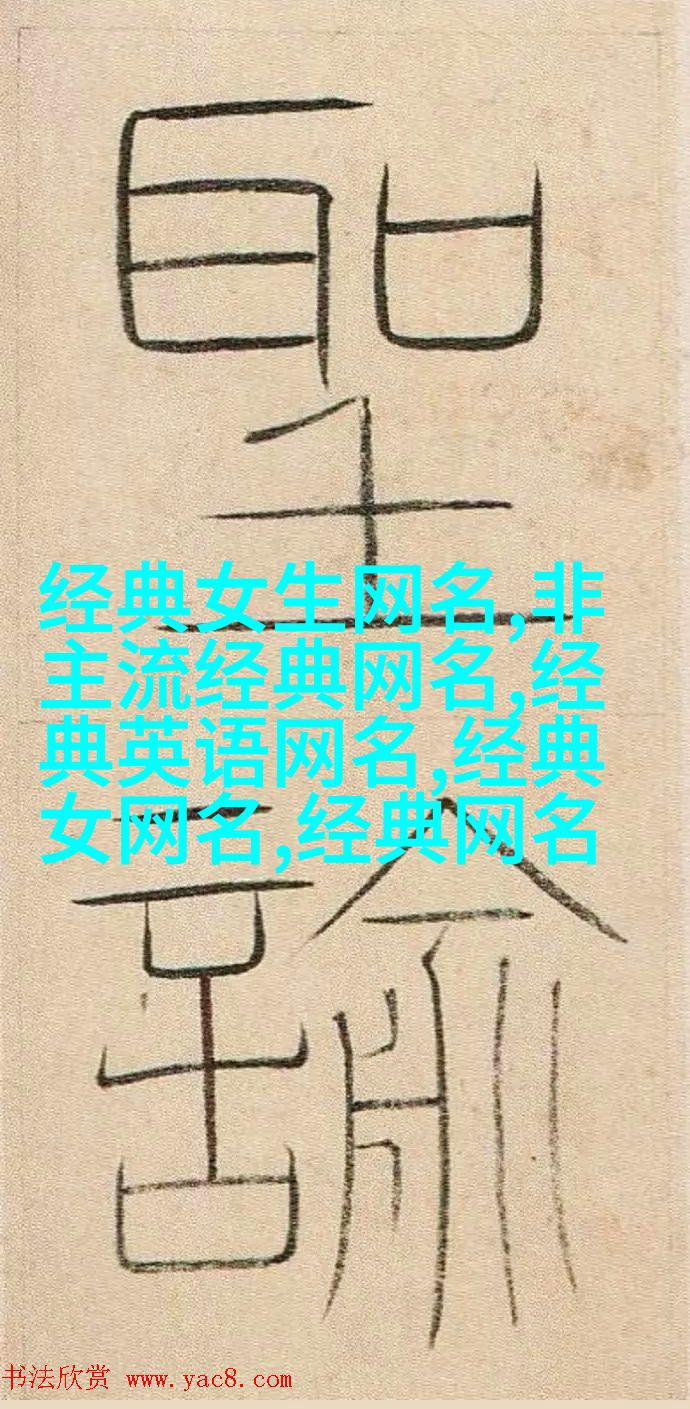 聖
諭
经典女生网名,非
主流经典网名,经
典英语网名,经典
女网名,经典网名
书法欣赏 www.yac8.com